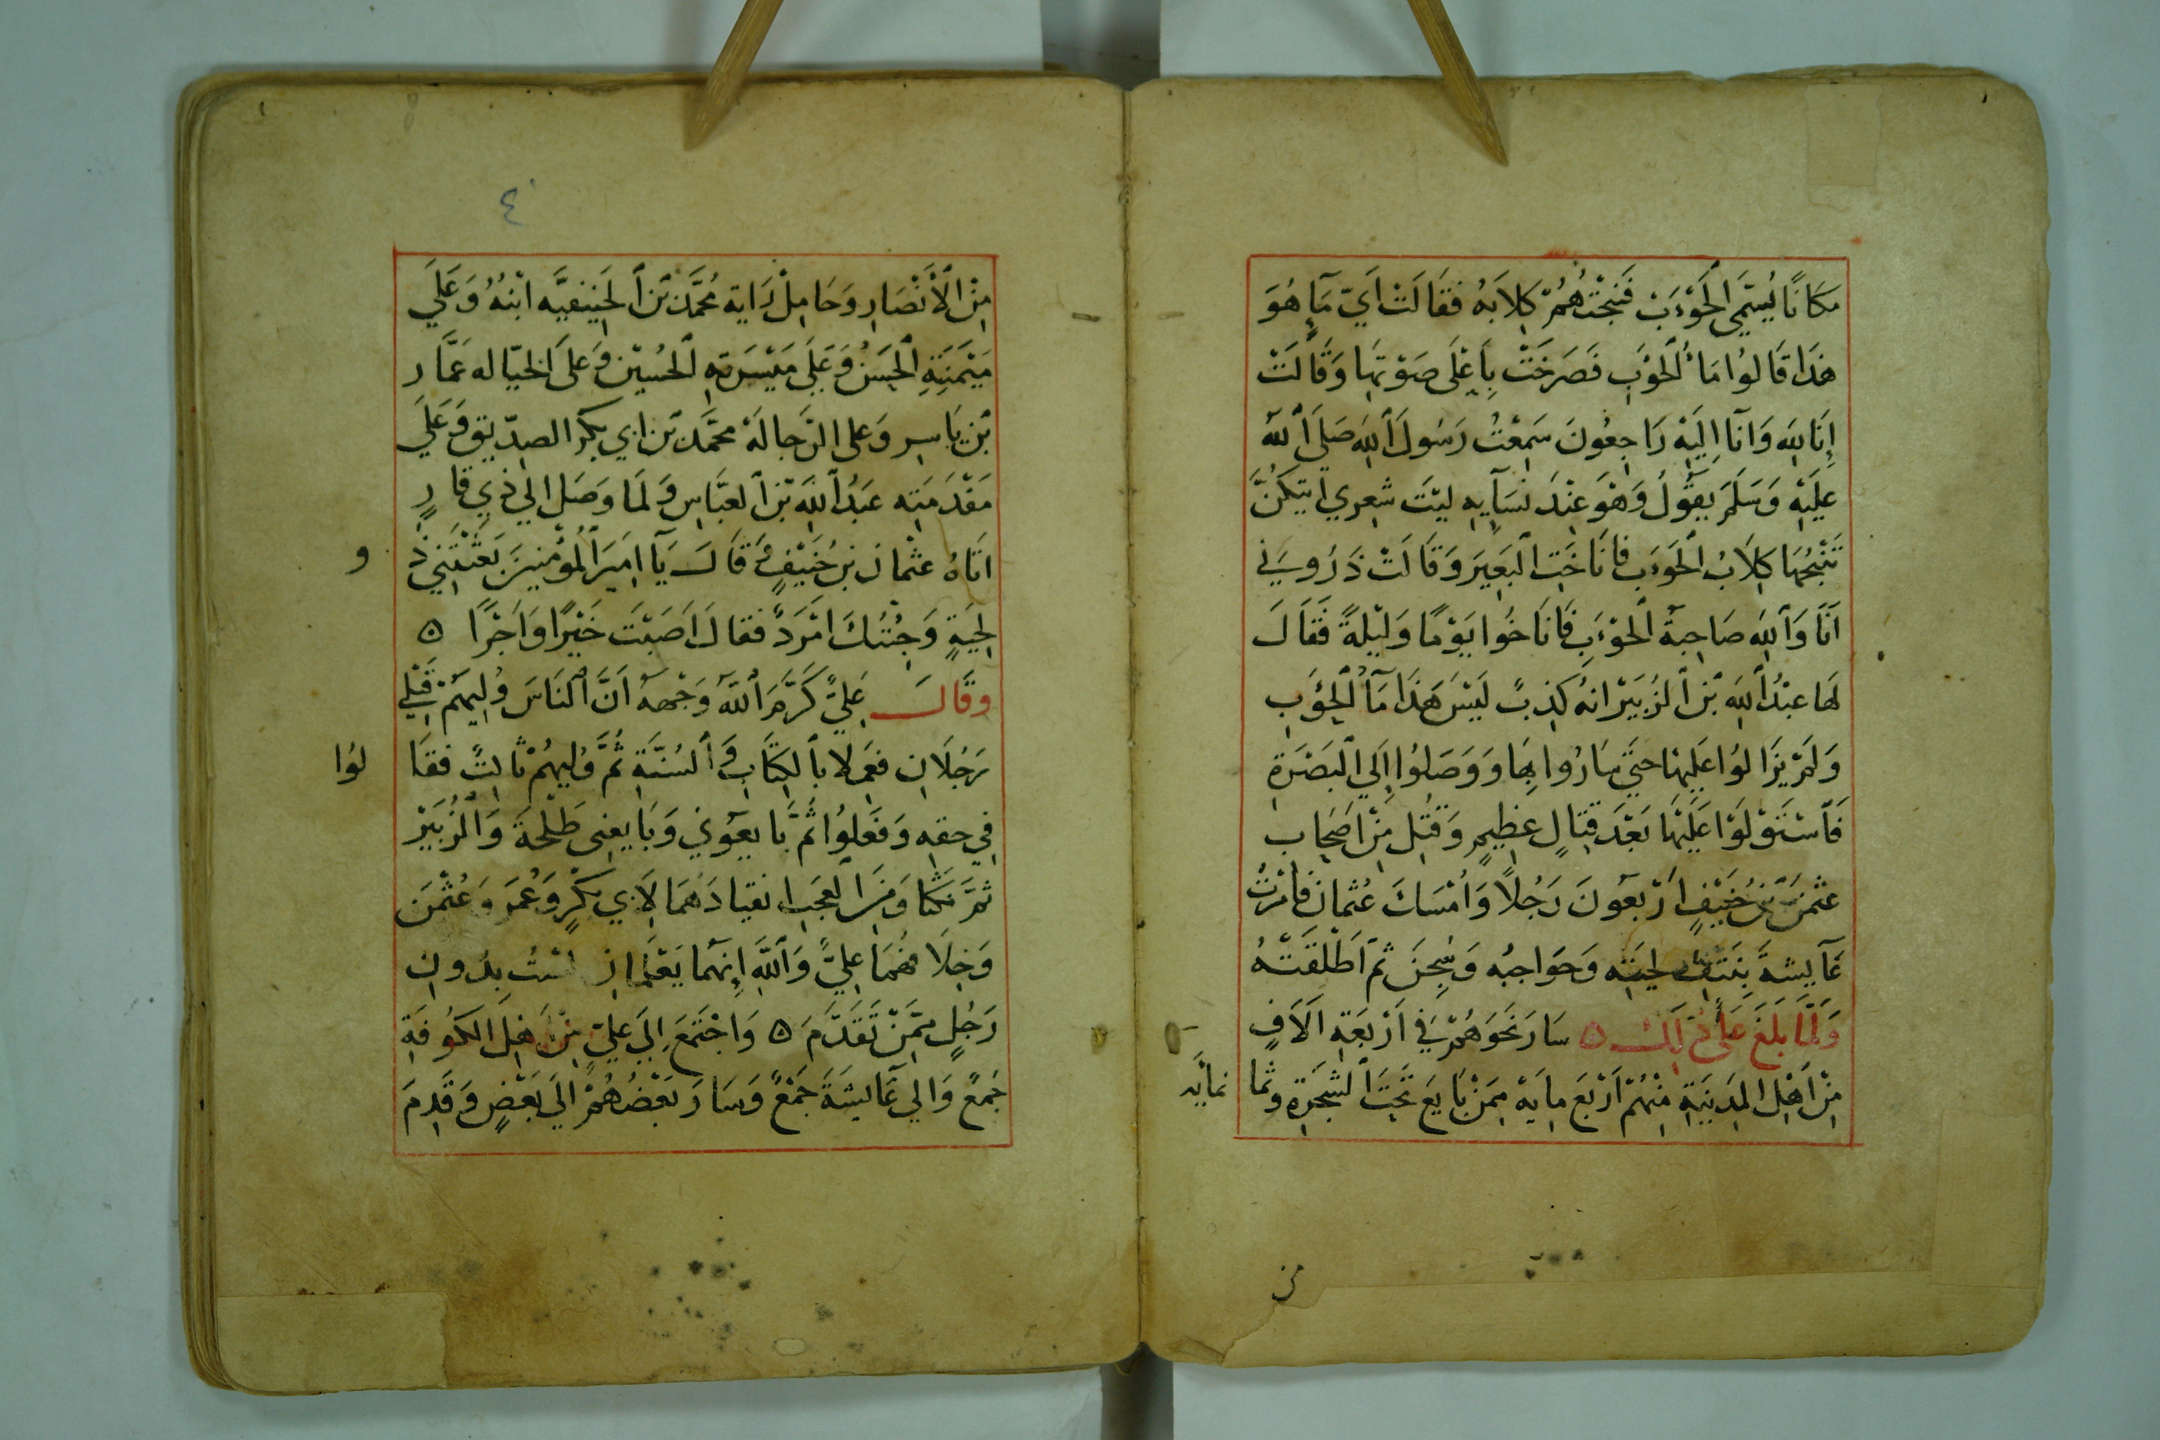 مكانًا يُسمّى الحَوْءَب فنبحتهُم كلابه فقالت اَيّ مآءٍ هُوَ
هذا قالوا مآءُ الحَوْءَب فَصَرخَتْ بِاَعْلَى صَوْتها وَقَالَتْ
إنا لله وَانآ اِليْهِ رَاجعُونَ سَمِعْتُ رَسُولَ الله صَلى الله
عليْهِ وَسَلمَ يقُولُ وَهْوَ عِنْدَ نسَآيِه ليْتَ شعري ايتكنَّ
تَنْبحُهَا كلَابُ الحَوءَب فانَاخَتِ البَعِيرَ وَقَالَتْ ذَرُوني
اَنَا وَاللهِ صَاحبةُ الحَوْءَبِ فَانَاخُوا يَوْمًا وَليْلةً فَقَالَ
لهَا عبْدُ الله بْن الزُبَيْر انهُ كذبٌ لَيْسَ هَذَا مآءُ الحَوءَبِ
وَلمْ يزَالوُا عَليْهَا حتيَّ سَارُوا بهَا وَوَصَلوُا إلي البَصْرَةِ
فَاسْتَوْلَوْا عَليْهَا بَعْدَ قتَالٍ عظِيمٍ وَقتِلَ مِنْ اصحَاب
عثمنَ بْن حُنَيْفٍ اَرْبعُونَ رَجُلاً وَاُمْسَكَ عُثمان فامَرَتْ
عَآيشة بنَتْفِ لحيَتِه وَحَوَاجبُه وَسُجِنَ ثمَ اَطْلقَتْهُ
وَلمّا بَلغَ عَليَّ ذلِك ۞ سَارَ نَحوَهُمْ في اَرْبَعَةِ الَافٍ
مِنْ اَهْل المَدينَةِ مِنْهُمْ اَرْبَع مايَة مِمَنْ بَايَعَ تَحْتَ الشجَرَةِ وثما
نمايَه
من
٤
مِنَ الْاَنْصَارِ وَحَامِلْ رَاية مُحمَّد بْن الحَنيفيَّه ابْنهُ وَعَلَي
مَيْمَنَتِهِ الحَسَنُ وَعَلَي مَيْسَرَتِهِ الحُسيْن وَعَلَى الخيّاله عَمَّار
بْن يَاسِر وَعلى الرَّجالَة محمَّد بْن ابي بَكر الصدّيق وَعَلَي
مَقدَمَتِه عَبدُ اللهِ بْن العبَّاسِ وَلمَا وَصَل الي ذي قارٍ
اتاهُ عثمان بن حُنَيْفٍ وَقالَ يَآ امِيرَ المُؤْمِنينَ بَعَثْتَنِي ذُ
و
لحيَةٍ وَجِئتُكَ امْرَدً فقال اَصَبْتَ خَيْرًا وَاَجْرًا ۞
وقَالَ عَليّ كَرَّمَ اللهُ وَجْهَهُ اَنَّ النَاسَ وَليهُمْ قَبْلي
رَجُلَانِ فعَملا بالكِتَابِ وَالسُنّةِ ثمَّ وَليهُمْ ثالثٌ فقَا
لوُا
في حقه وَفعَلوُا ثمَّ بَايعُوني وَبَايعني طَلْحَة وَالزُبَيْر
ثمَّ نَكثا وَمِنَ العجَب انقيادَهُمَا لِاَبي بَكرٍ وَعُمَر وَعُثْمَن
وَخِلَافهُمَا عليَّ وَاللهِ إنهُمَا يَعْلَمَا بدُونِ
رَجُلٍ مِمّنْ تَقَدَّمَ ۞ وَاجْتمَعَ اِلَى عَليّ مِنْ اَهْل الكوُفَةِ
جَمعٌ وَالي عَآيشَةَ جَمْعٌ وَسَارَ بَعْضُهُمْ الَي بَعْضٍ وَقَدِمَ